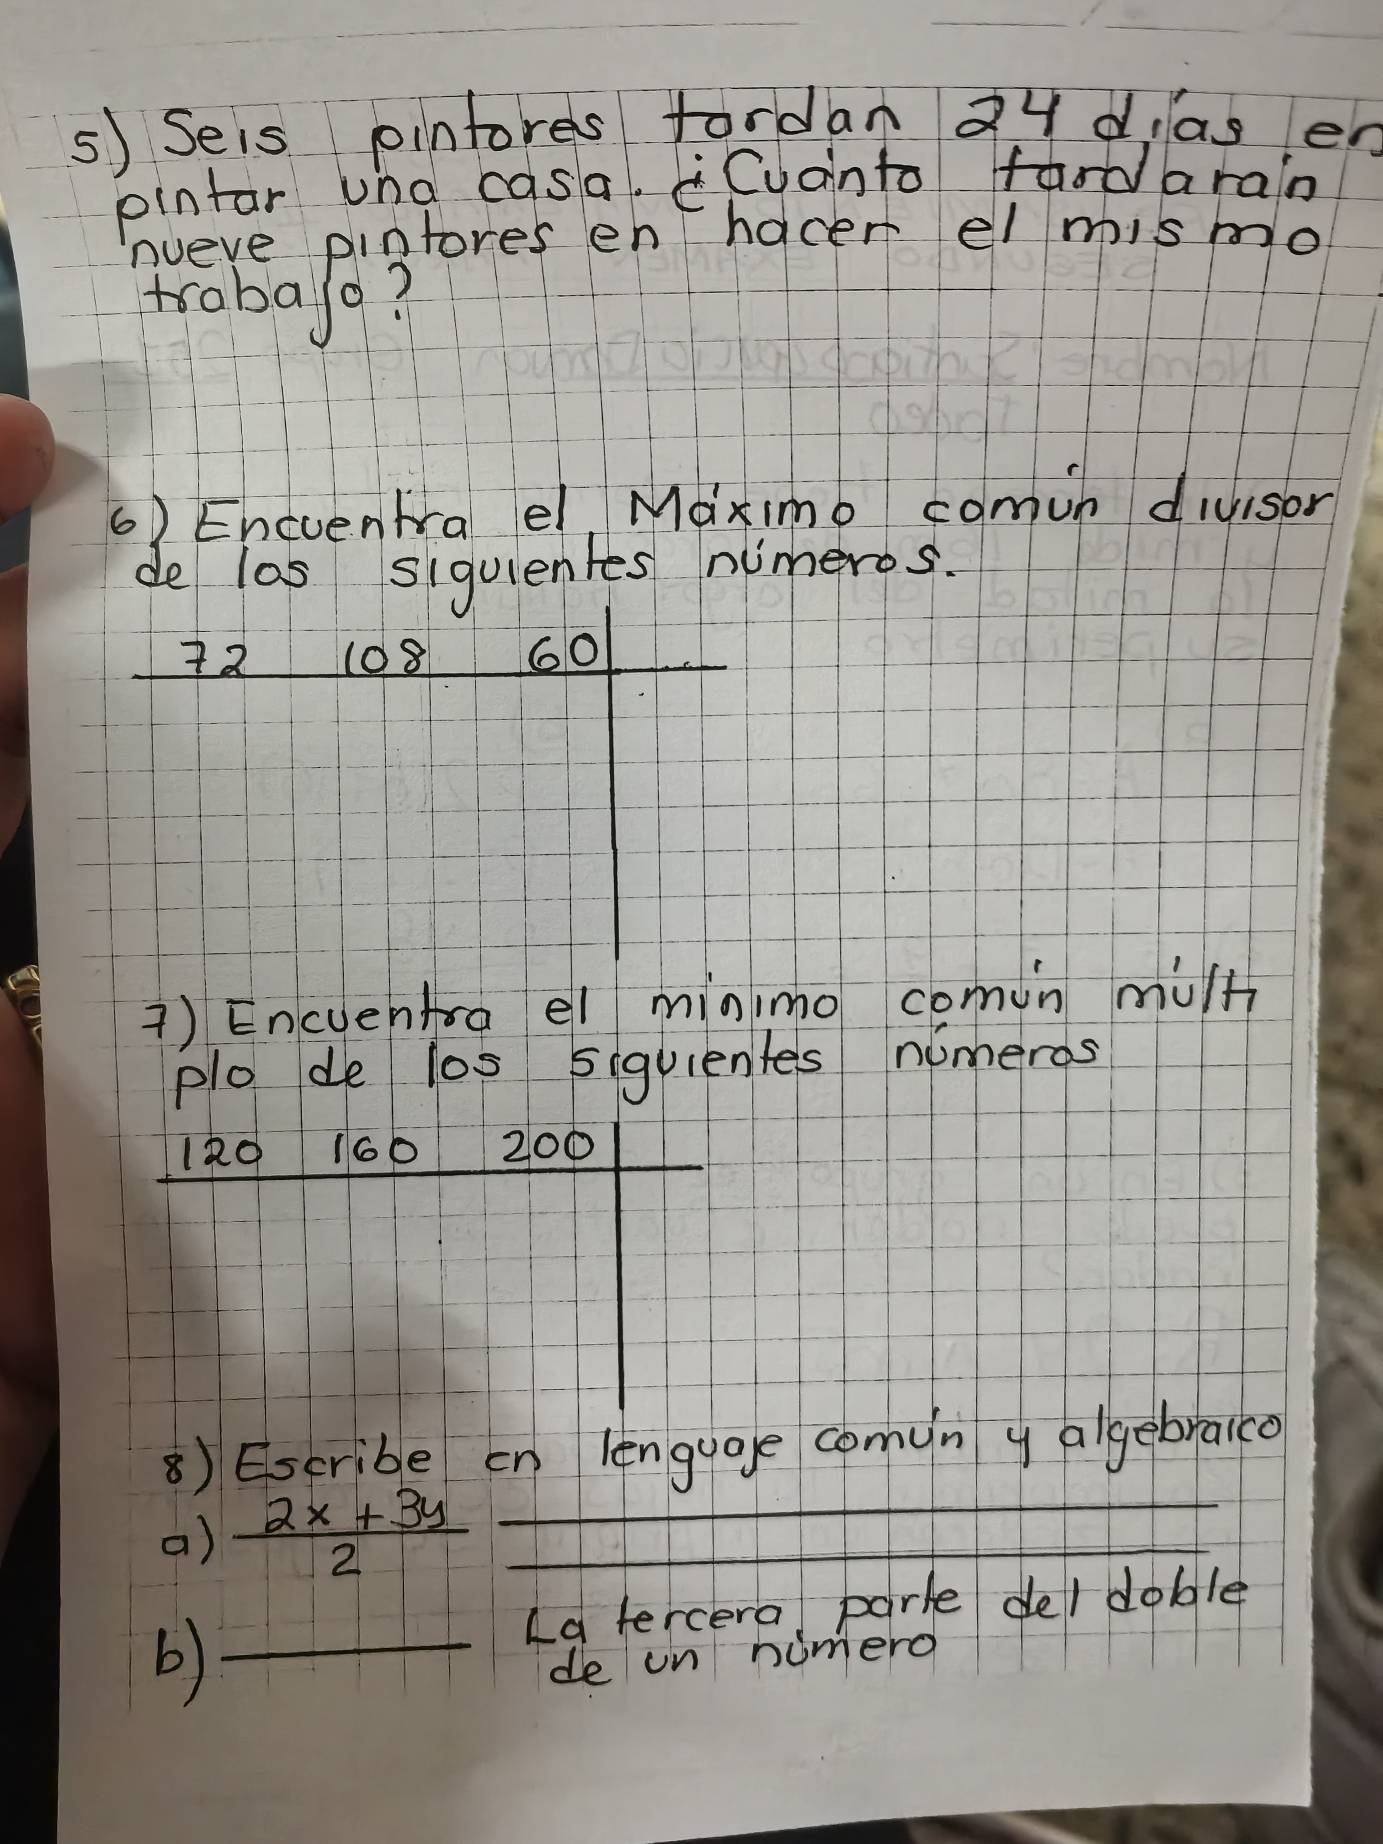 5) Seis pintores tardan 24 días en
pintar una casa. ¿Cuánto tardarán
nueve pintores en hacer el mismo
trabajo?
6) Encuentra el Máximo común divisor
de los siguientes números.
72 108 60
7) Encuentra el minimo común múlti
plo de los siguientes números
120 160 200
8) Escribe en lenguaje común y algebraico
a) 2x + 3y
2
b) La tercera parte del doble
de un número